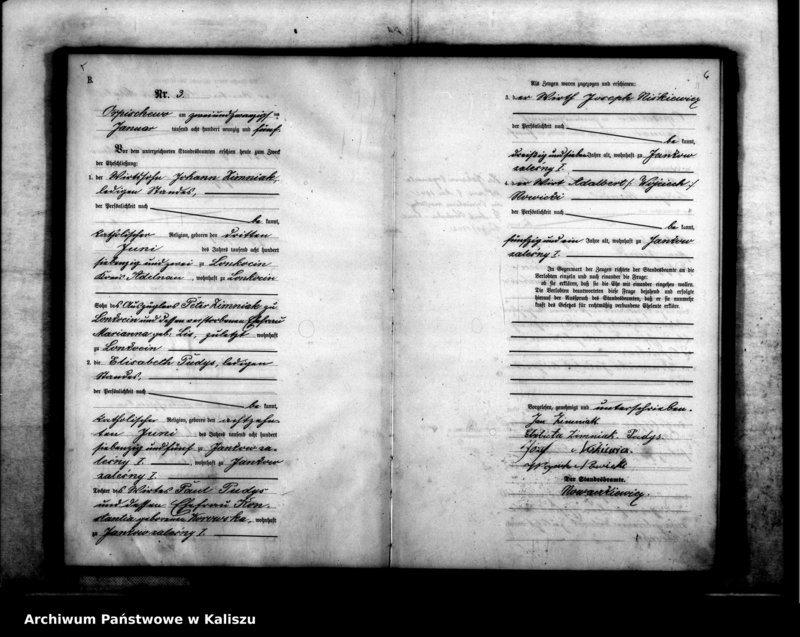 B.
Nr. 3.
Orpischewo am zweiundzwanzigsten
Januar tausend acht hundert neunzig und fünf.
Vor dem unterzeichneten Standesbeamten erschienen heute zum Zweck
der Eheschließung:
1. der Wirthssohn Johann Zimniak,
ledigen Standes,
der Persönlichkeit nach
be kannt,
katholischer Religion, geboren den dritten
Juni des Jahres tausend acht hundert
siebenzig und zwei zu Lonkocin
Kreis Adelnau, wohnhaft zu Lonkocin
Sohn des Auszüglers Peter Zimniak zu
Lonkocin und dessen verstorbenen Ehefrau
Marianna geb. Lis, zuletzt wohnhaft
zu Lonkocin
2. die Elisabeth Pudys, ledigen
Standes,
der Persönlichkeit nach
be kannt,
katholischer Religion, geboren den achtzehn-
ten Juni des Jahres tausend acht hundert
siebenzig und fünf zu Jankow za-
lesny I., wohnhaft zu Jankow
zalesny I.
Tochter des Wirtes Paul Pudys
und dessen Ehefrau Kon-
stantia geborenen, wohnhaft
zu Jankow zalesny I.
6
Als Zeugen waren zugezogen und erschienen:
3. der Wirth Joseph Niskiewicz
der Persönlichkeit nach
be kannt,
dreißig und sieben Jahre alt, wohnhaft zu Jankow
zalesny I.
4. der Wirt Adalbert / Wojciech /
Nowicki
der Persönlichkeit nach
be kannt,
fünfzig und ein Jahre alt, wohnhaft zu Jankow
zalesny I.
In Gegenwart der Zeugen richtete der Standesbeamte an die
Verlobten einzeln und nach einander die Frage:
ob sie erklären, daß sie die Ehe mit einander eingehen wollen.
Die Verlobten beantworteten diese Frage bejahend und erfolgte
hierauf der Ausspruch des Standesbeamten, daß er sie nunmehr
kraft des Gesetzes für rechtmäßig verbundene Eheleute erkläre.
Vorgelesen, genehmigt und unterschrieben.
Jan Zimniak
Elżbieta Zimniak Pudys
Józef Niskiewicz.
Nowicki
Der Standesbeamte.
Nowaczkiewicz.
Archiwum Państwowe w Kaliszu